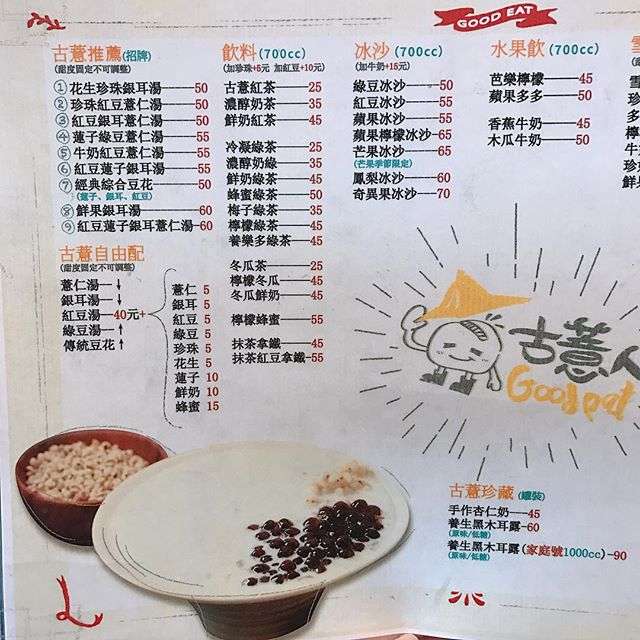 GOOD EAT
古薏推薦(招牌)
(甜度固定不可調整)
①花生珍珠銀耳湯——50
②珍珠紅豆薏仁湯——50
③紅豆銀耳薏仁湯——50
④蓮子綠豆薏仁湯——55
⑤牛奶紅豆薏仁湯——55
⑥紅豆蓮子銀耳湯——55
⑦經典綜合豆花——50
(蓮子、銀耳、紅豆)
⑧鮮果銀耳湯——60
⑨紅豆蓮子銀耳薏仁湯—60
古薏自由配
(甜度固定不可調整)
薏仁湯—↓
銀耳湯—↓
紅豆湯—40元+
綠豆湯—↑
傳統豆花↑
薏仁 5
銀耳 5
紅豆 5
綠豆 5
珍珠 5
花生 5
蓮子 10
鮮奶 10
蜂蜜 15
飲料(700cc)
(加珍珠+5元 加紅豆+10元)
古薏紅茶——25
濃醇奶茶——35
鮮奶紅茶——45
冷凝綠茶——25
濃醇奶綠——35
鮮奶綠茶——45
蜂蜜綠茶——50
梅子綠茶——35
檸檬綠茶——45
養樂多綠茶—45
冬瓜茶——25
檸檬冬瓜——45
冬瓜鮮奶——45
檸檬蜂蜜——55
抹茶拿鐵——45
抹茶紅豆拿鐵—55
冰沙(700cc)
(加牛奶+15元)
綠豆冰沙——50
紅豆冰沙——55
蘋果冰沙——55
蘋果檸檬冰沙—65
芒果冰沙——65
(芒果季節限定)
鳳梨冰沙——60
奇異果冰沙——70
水果飲(700cc)
芭樂檸檬——45
蘋果多多——50
香蕉牛奶——45
木瓜牛奶——50
雪
雪
珍
多
牛
珍
鮮
古薏人
Good eat
古薏珍藏(罐裝)
手作杏仁奶——45
養生黑木耳露-60
(原味/低糖)
養生黑木耳露(家庭號1000cc)-90
(原味/低糖)